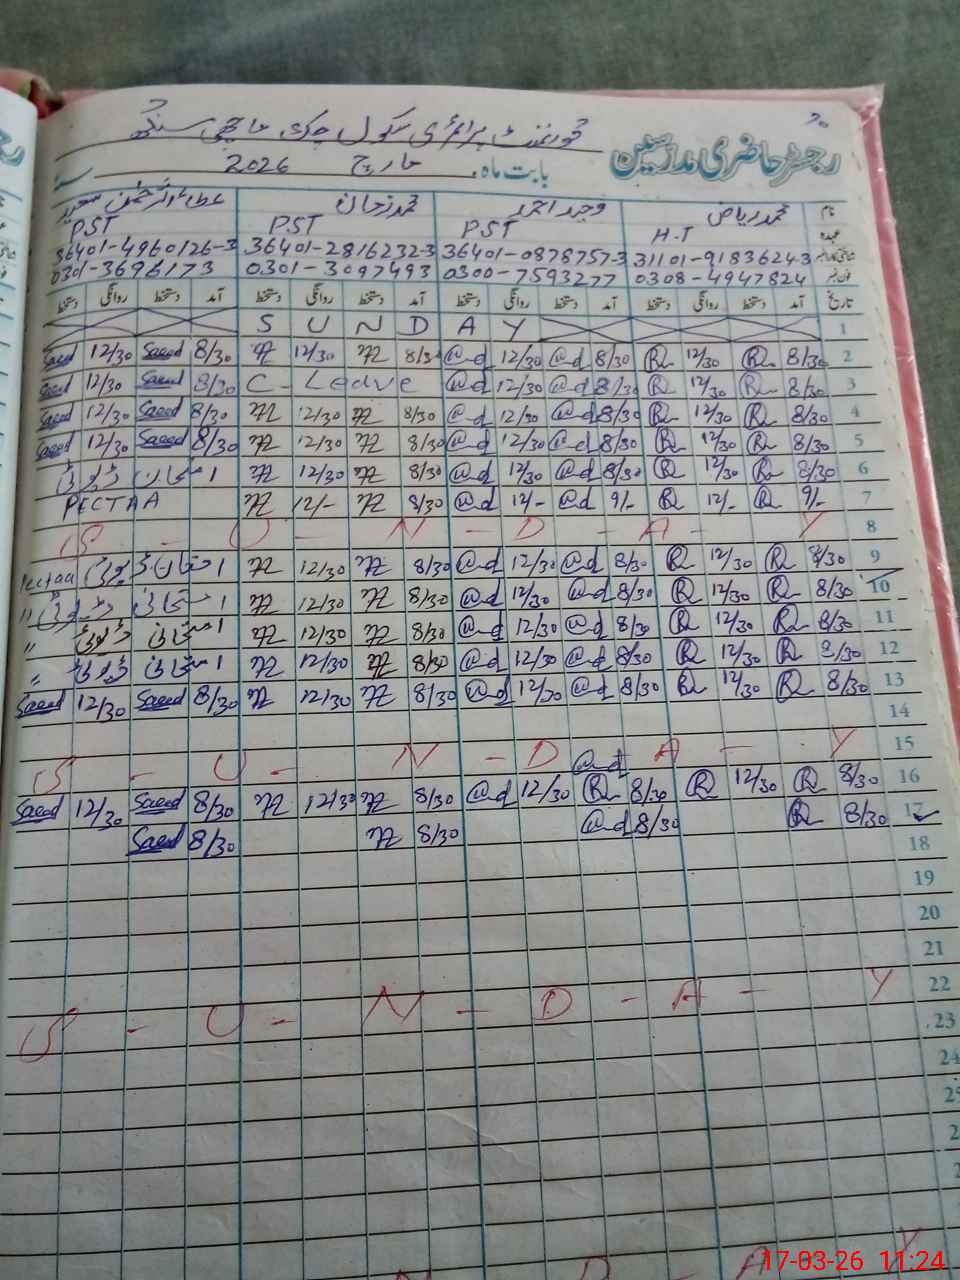 گورنمنٹ پرائمری سکول چک ماچھی سنگھ
رجسٹر حاضری مدرسین
بابت ماہ مارچ 2026
نام محمد ریاض وحید احمد محمد زحان عطاء الرحمن سعید
عہدہ H.T P.ST P.ST PST
31101-9183624-3 36401-0878757-3 36401-2816232-3 36401-4960126-3
0308-4947824 0300-7593277 0301-3097493 0301-3696173
تاریخ آمد دستخط روانگی دستخط آمد دستخط روانگی دستخط آمد دستخط روانگی دستخط آمد دستخط روانگی دستخط
1 S U N D A Y
2 8/30 R 12/30 R 8/30 @d 12/30 @d 8/30 12/30 8/30 Saeed 12/30 Saeed
3 8/30 R 12/30 R 8/30 @d 12/30 @d C - Leave 8/30 Saeed 12/30 Saeed
4 8/30 R 12/30 R 8/30 @d 12/30 @d 8/30 12/30 8/30 Saeed 12/30 Saeed
5 8/30 R 12/30 R 8/30 @d 12/30 @d 8/30 12/30 8/30 Saeed 12/30 Saeed
6 8/30 R 12/30 R 8/30 @d 12/30 @d 8/30 12/30 امتحان ڈیوٹی
7 9/- R 12/- R 9/- @d 12/- @d 8/30 12/- PECTAA
8 S - U - N - D - A - Y
9 8/30 R 12/30 R 8/30 @d 12/30 @d 8/30 12/30 امتحان ڈیوٹی Pectaa
10 8/30 R 12/30 R 8/30 @d 12/30 @d 8/30 12/30 امتحان ڈیوٹی "
11 8/30 R 12/30 R 8/30 @d 12/30 @d 8/30 12/30 امتحان ڈیوٹی "
12 8/30 R 12/30 R 8/30 @d 12/30 @d 8/30 12/30 امتحان ڈیوٹی "
13 8/30 R 12/30 R 8/30 @d 12/30 @d 8/30 12/30 8/30 Saeed 12/30 Saeed
14
15 S - U - N - D - A - Y
@d
16 8/30 R 12/30 R 8/30 R 12/30 @d 8/30 12/30 8/30 Saeed 12/30 Saeed
17 8/30 R 8/30 @d 8/30 8/30 Saeed
18
19
20
21
22 S - U - N - D - A - Y
23
24
N D A Y
17-03-26 11:24